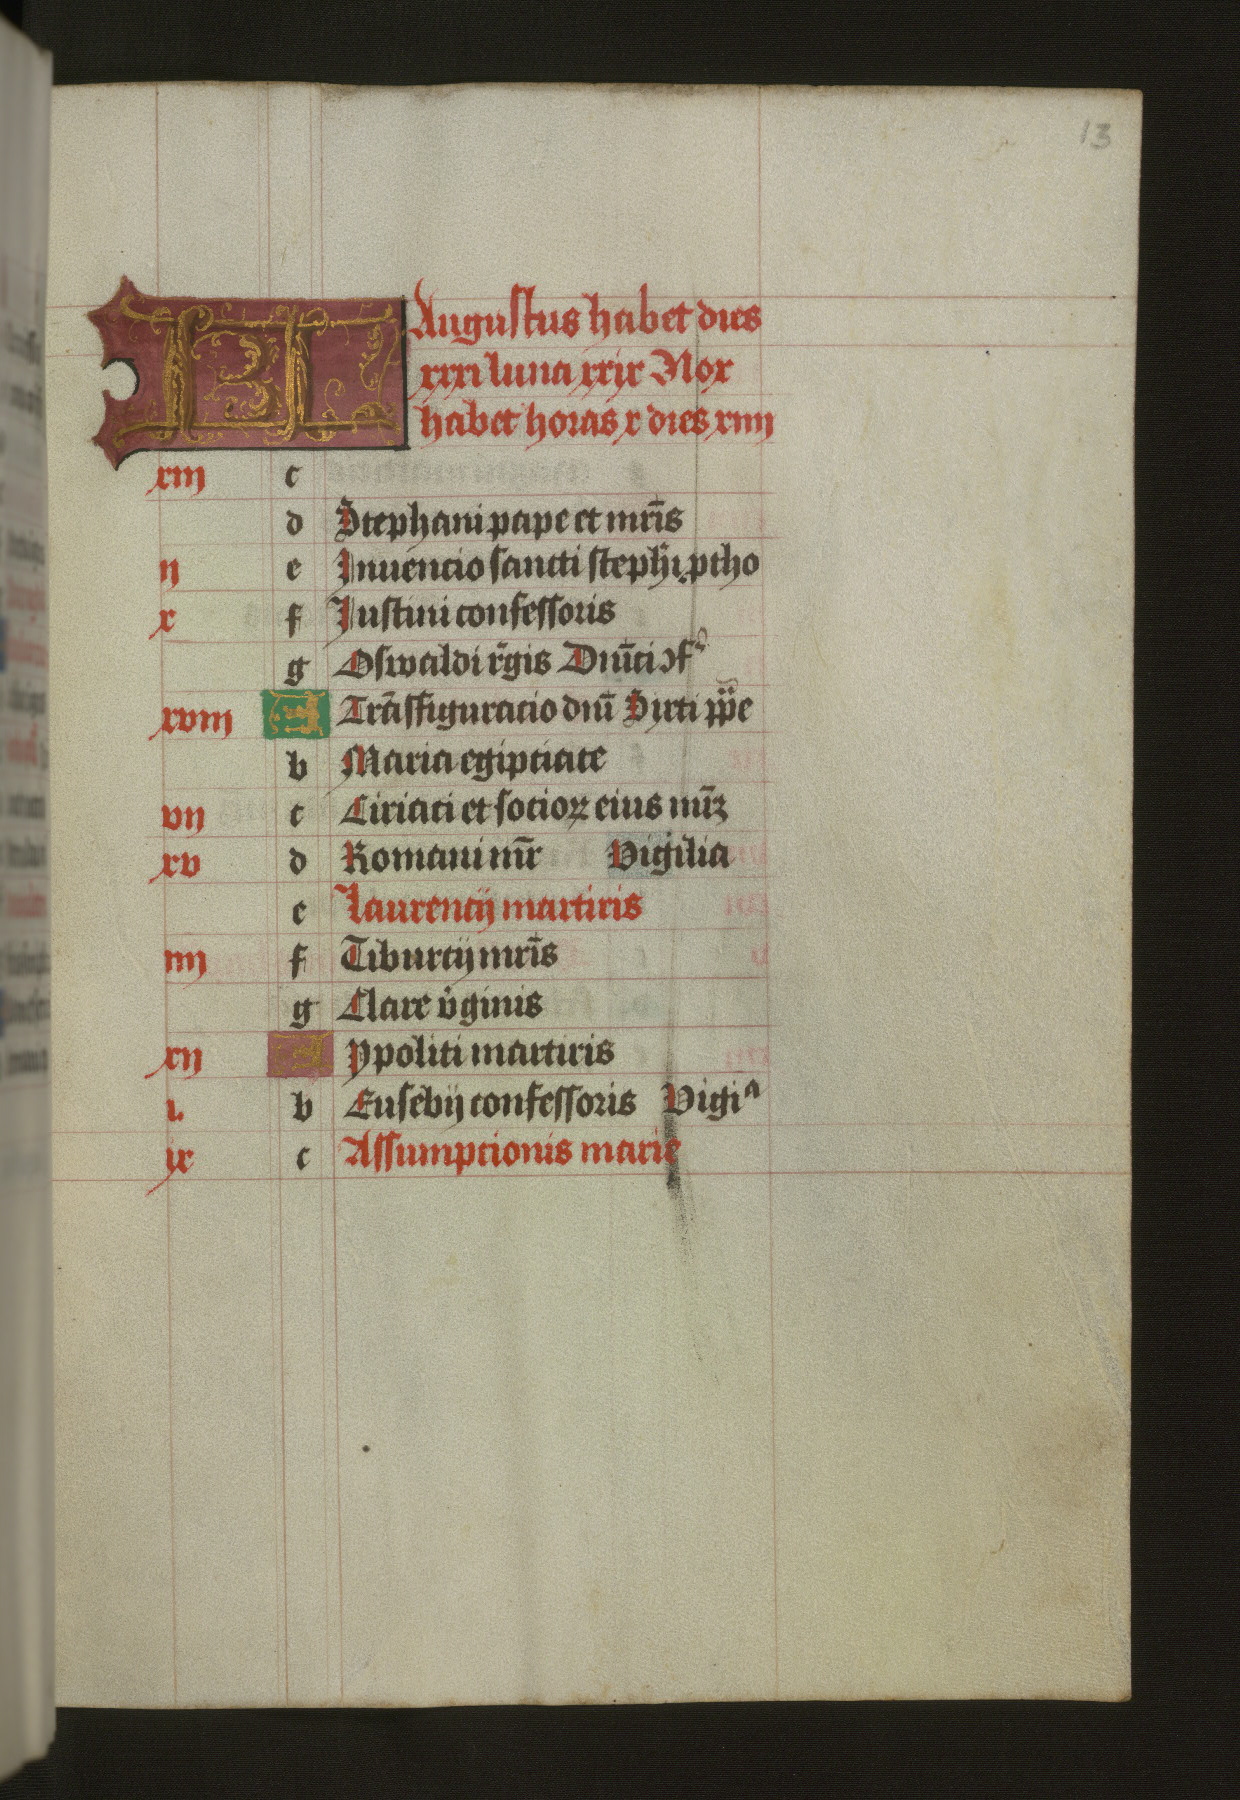 13
KL Augustus habet dies
xxxi luna xxix Nox
habet horas x dies xiiij
xiij c
d Stephani pape et mr̄is
ij e Inuencio sancti steph̄i ptho
x f Iustini confessoris
g Oswaldi r̄gis Dn̄ici ɔf
xviij A Trāsfiguracio dnī Sixti pp̄e
b Maria egipciace
vij c Ciriaci et socioꝝ eius mr̄ꝫ
xv d Romani mr̄ Vigilia
e Laurencij martiris
iiij f Tiburcij mr̄is
g Clare v̄ginis
xij A Ypoliti martiris
i. b Eusebij confessoris Vigiᵃ
ix c Assumpcionis marie